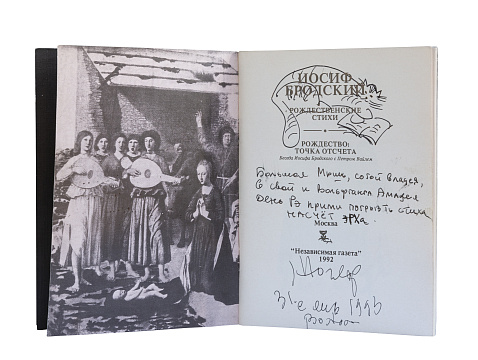 ИОСИФ
БРОДСКИЙ
РОЖДЕСТВЕНСКИЕ
СТИХИ
РОЖДЕСТВО:
ТОЧКА ОТСЧЕТА
Беседа Иосифа Бродского с Петром Вайлем
Большая Мышь, сотой владея,
В свой и Вольфганга Амадея
День Рэ прими погрызть стиха
насчёт эРХа.
Москва
"Независимая газета"
1992
31-е янв 1993